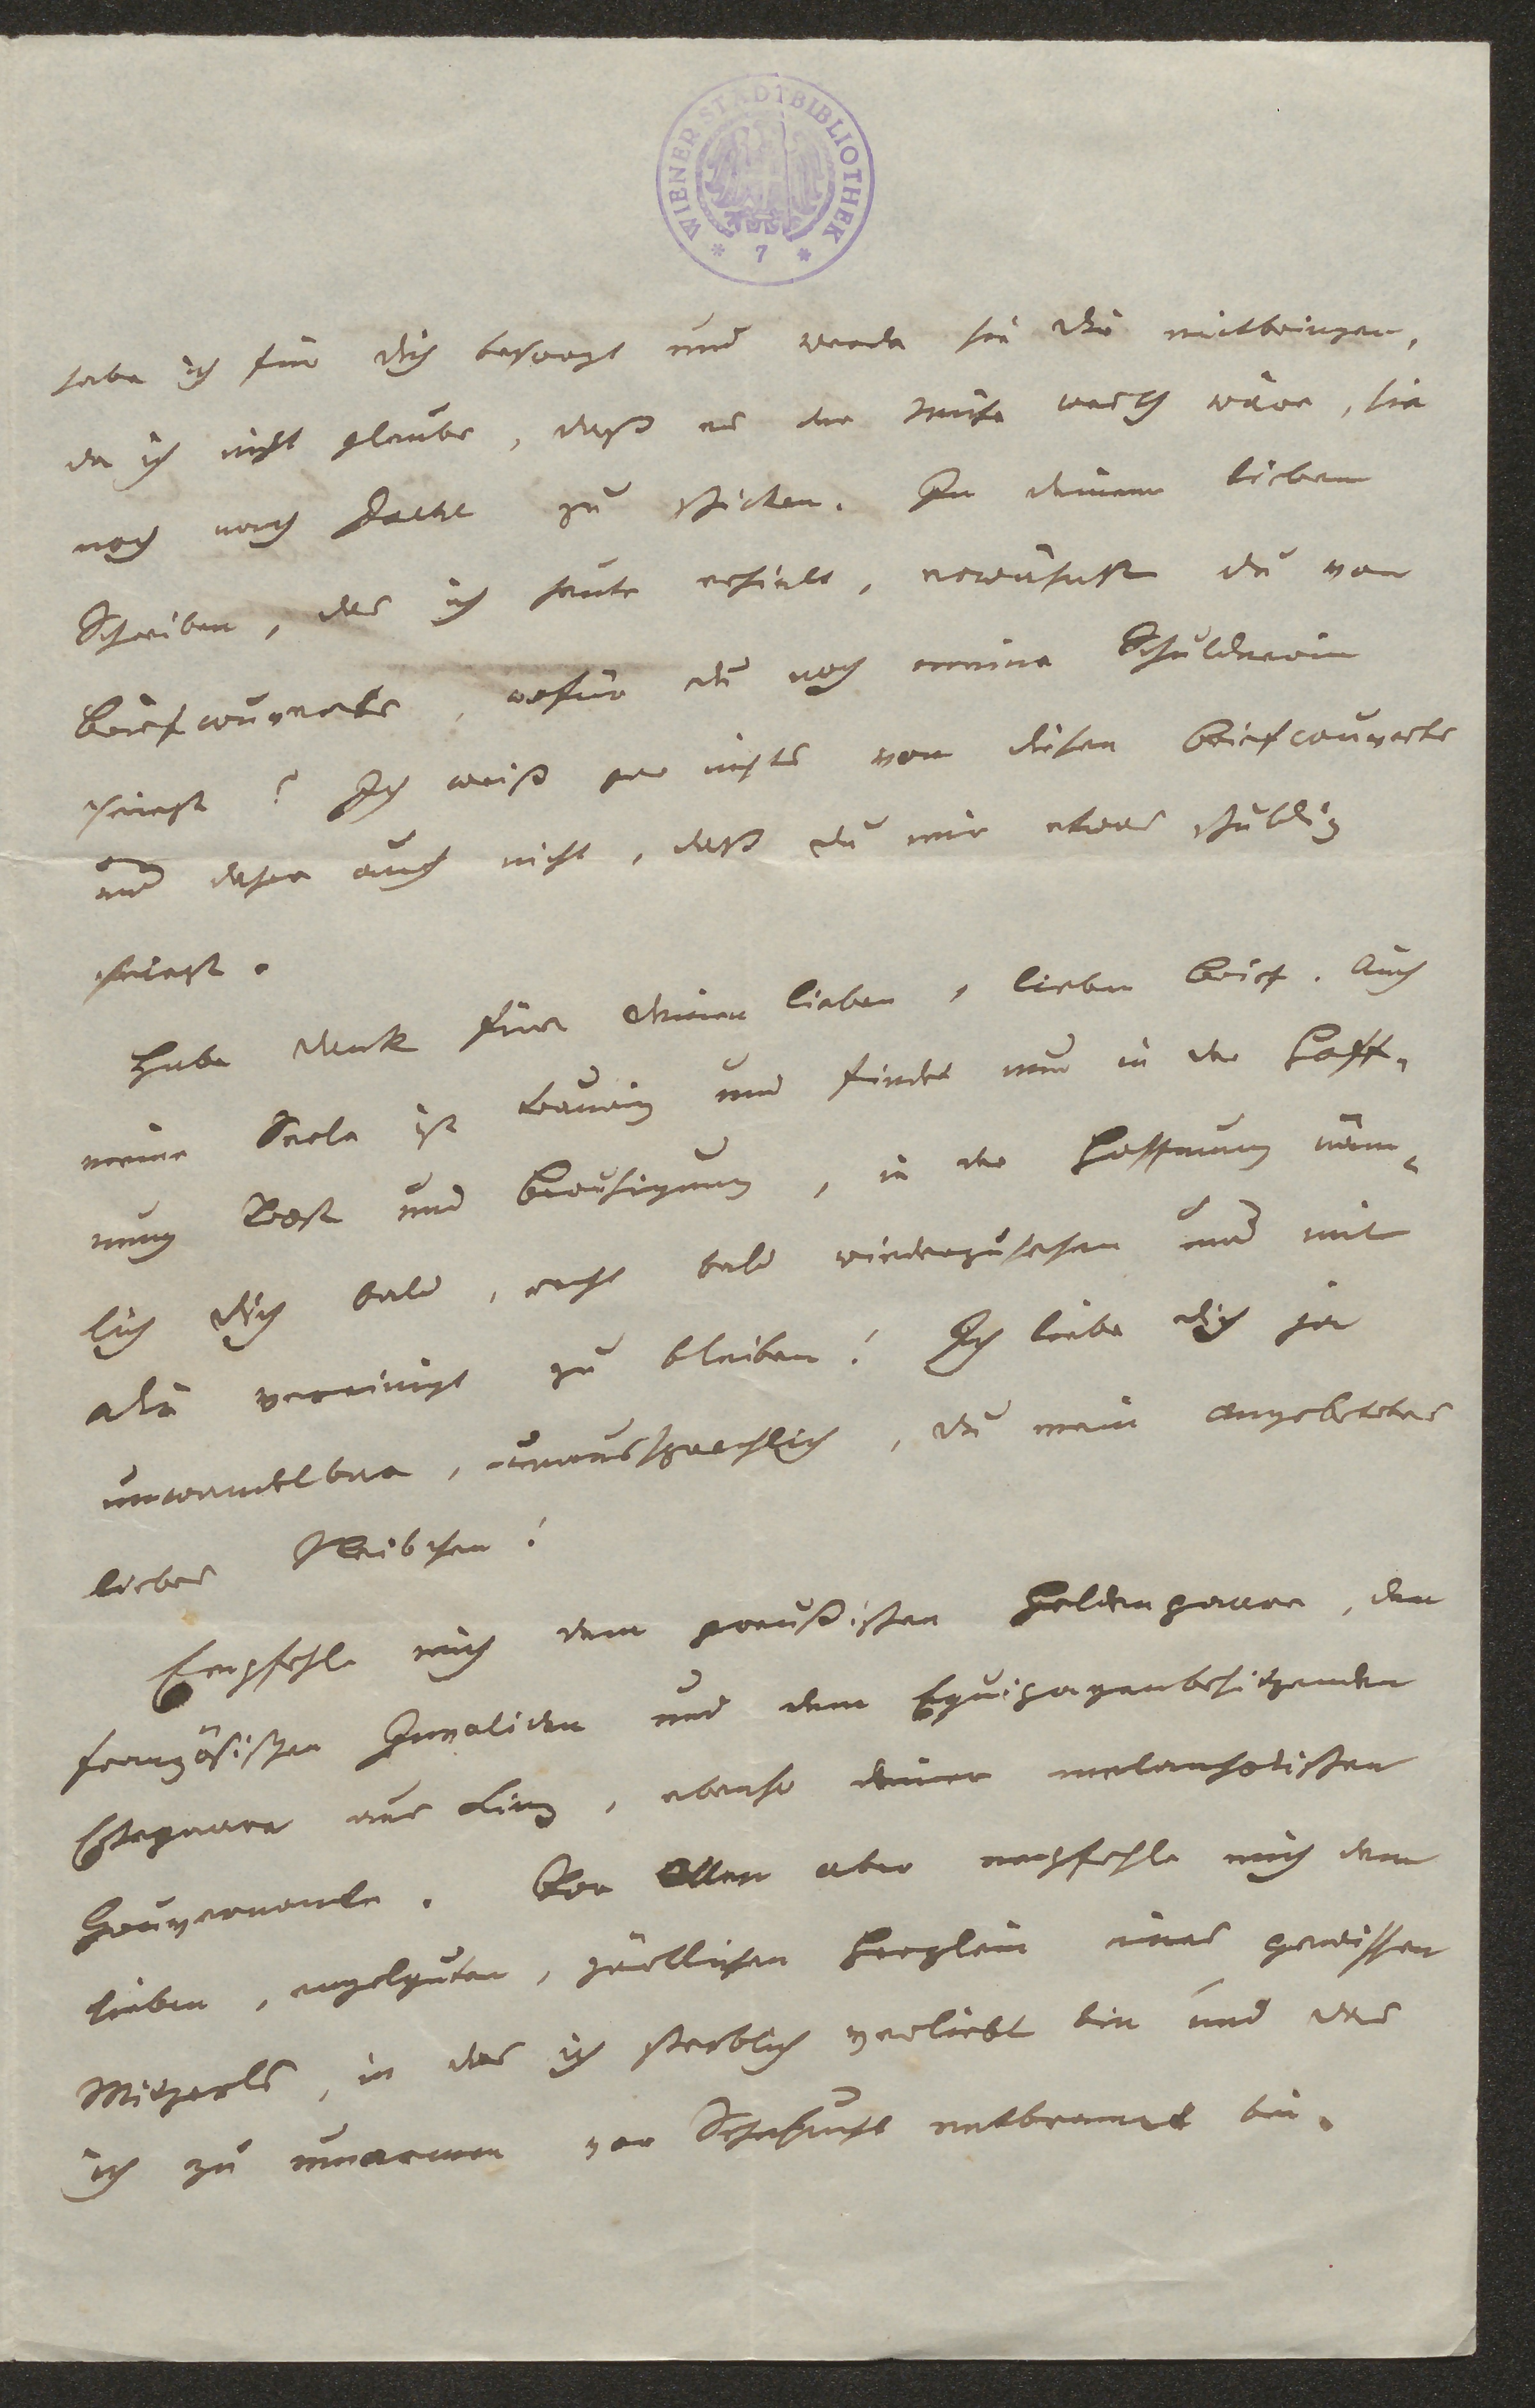 WIENER STADTBIBLIOTHEK
* 7 *
habe ich für dich besorgt und werde sie dir mitbringen,
da ich nicht glaube, daß es der Mühe werth wäre, sie
noch nach zu schicken. In deinem lieben
Schreiben, das ich heute erhielt, erwähnst du von
Briefcouverts, wofür du noch meine Schuldnerin
seiest? Ich weiß gar nichts von diesen Briefcouverts
und daher auch nicht, daß du mir etwas schuldig
seiest.
Habe Dank für deinen lieben, lieben Brief. Auch
meine Seele ist traurig und findet nur in der Hoff-
nung Trost und Beruhigung, in der Hoffnung näm-
lich dich bald, recht bald wiederzusehen und mit
dir vereinigt zu bleiben! Ich liebe dich ja
unwandelbar, unaussprechlich, du mein angebetetes
liebes Weibchen!
Empfehle mich dem preußischen Heldenpaare, den
französischen Invaliden und dem Equipagenbesitzenden
Ehepaare aus Linz, ebenso deiner melancholischen
Gouvernante. Vor Allem aber empfehle mich dem
lieben, engelguten, zärtlichen Herzlein eines gewissen
Mitzerls, in das ich sterblich verliebt bin und das
ich zu umarmen vor Sehnsucht entbrannt bin.